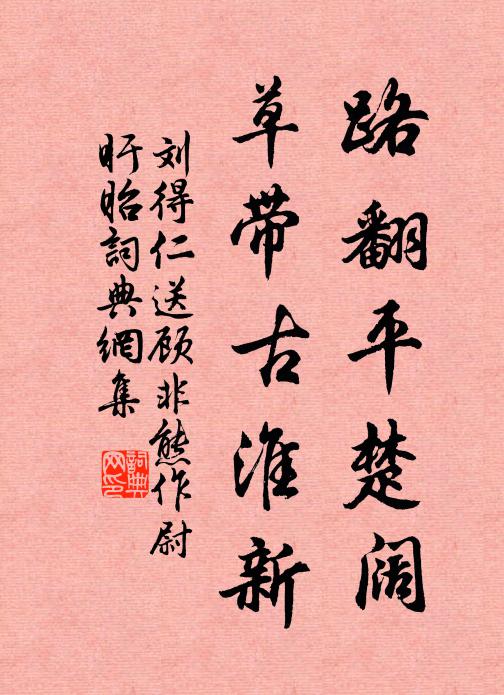 路翻平楚阔
草带古淮新
刘得仁送顾非熊作尉
盱眙詞典網集
詞典网印